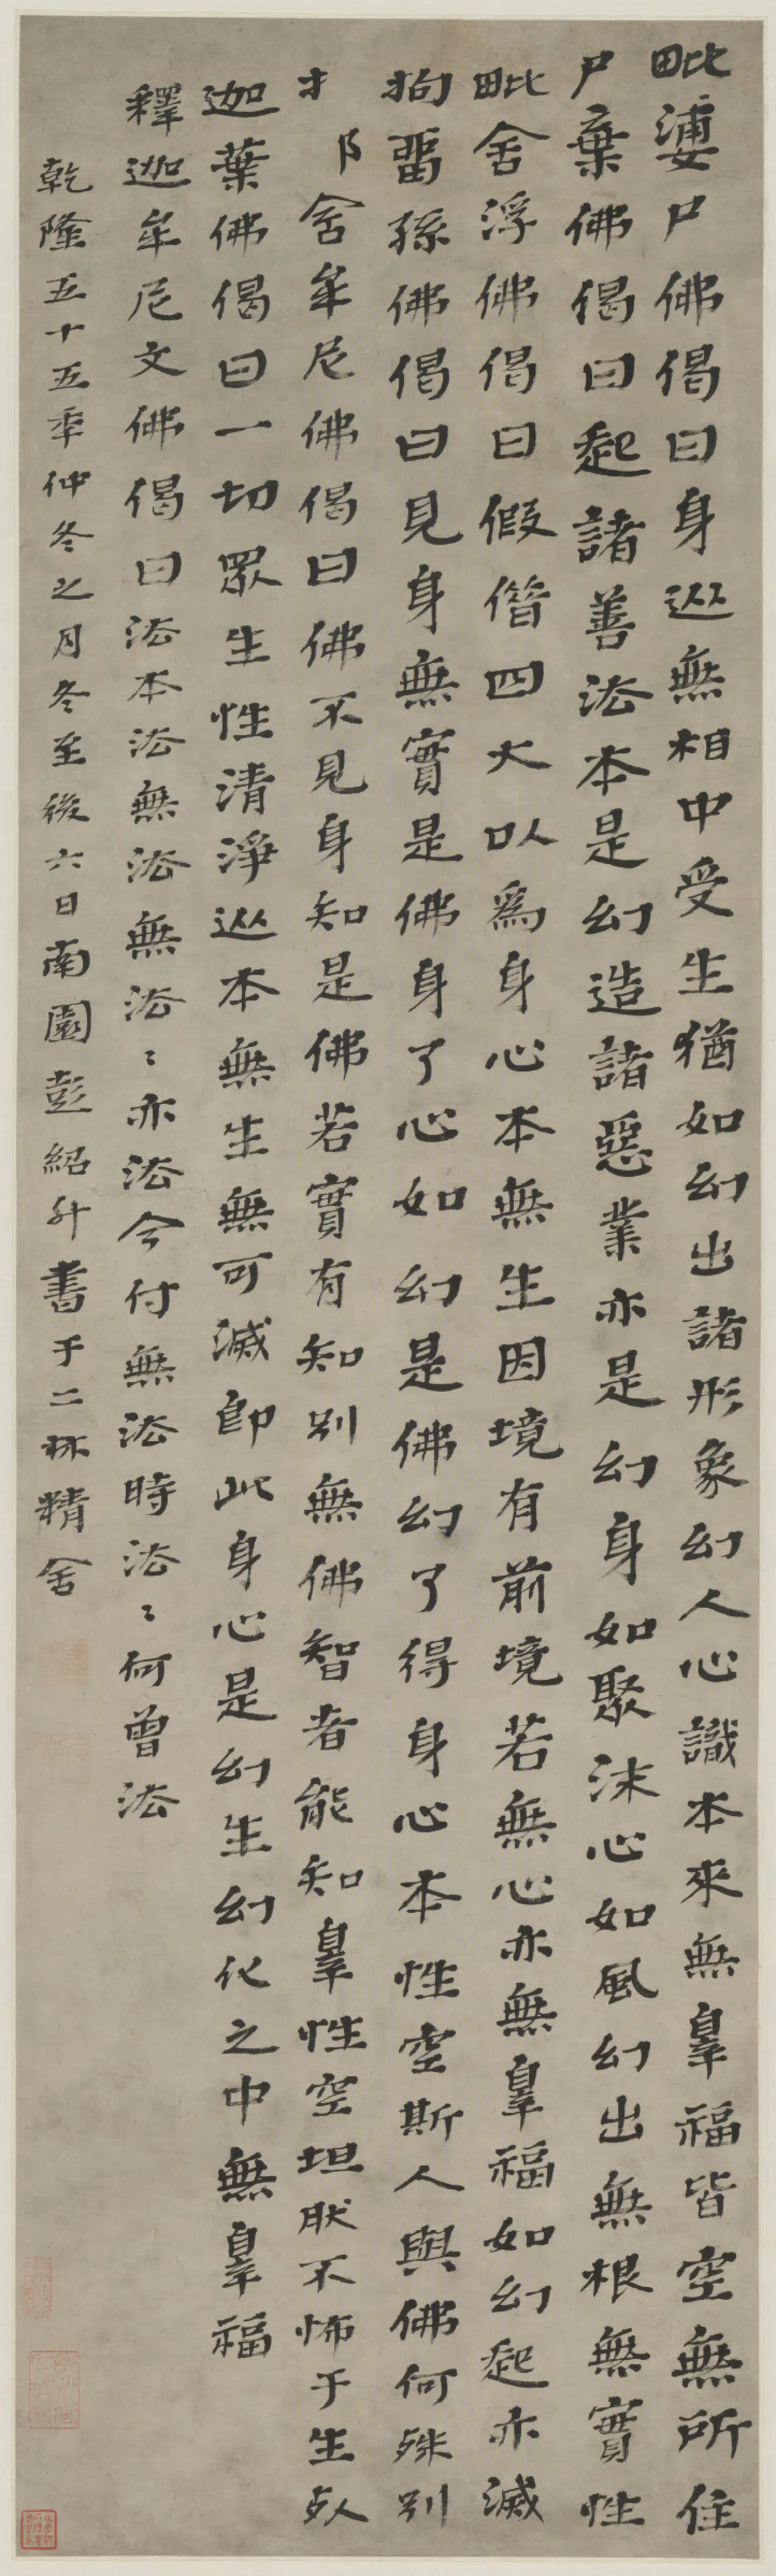 毗婆尸佛偈曰身從無相中受生猶如幻出諸形象幻人心識本來無辠福皆空無所住
尸棄佛偈曰起諸善法本是幻造諸惡業亦是幻身如聚沫心如風幻出無根無實性
毗舍浮佛偈曰假借四大以爲身心本無生因境有前境若無心亦無辠福如幻起亦滅
拘畱孫佛偈曰見身無實是佛身了心如幻是佛幻了得身心本性空斯人與佛何殊別
舍牟尼佛偈曰佛不見身知是佛若實有知別無佛智者能知辠性空坦肰不怖于生死
迦葉佛偈曰一切眾生性清淨從本無生無可滅卽此身心是幻生幻化之中無辠福
釋迦牟尼文佛偈曰法本法無法無法〻亦法今付無法時法〻何曾法
乾隆五十五年仲冬之月冬至後六日南園彭紹升書于二林精舍